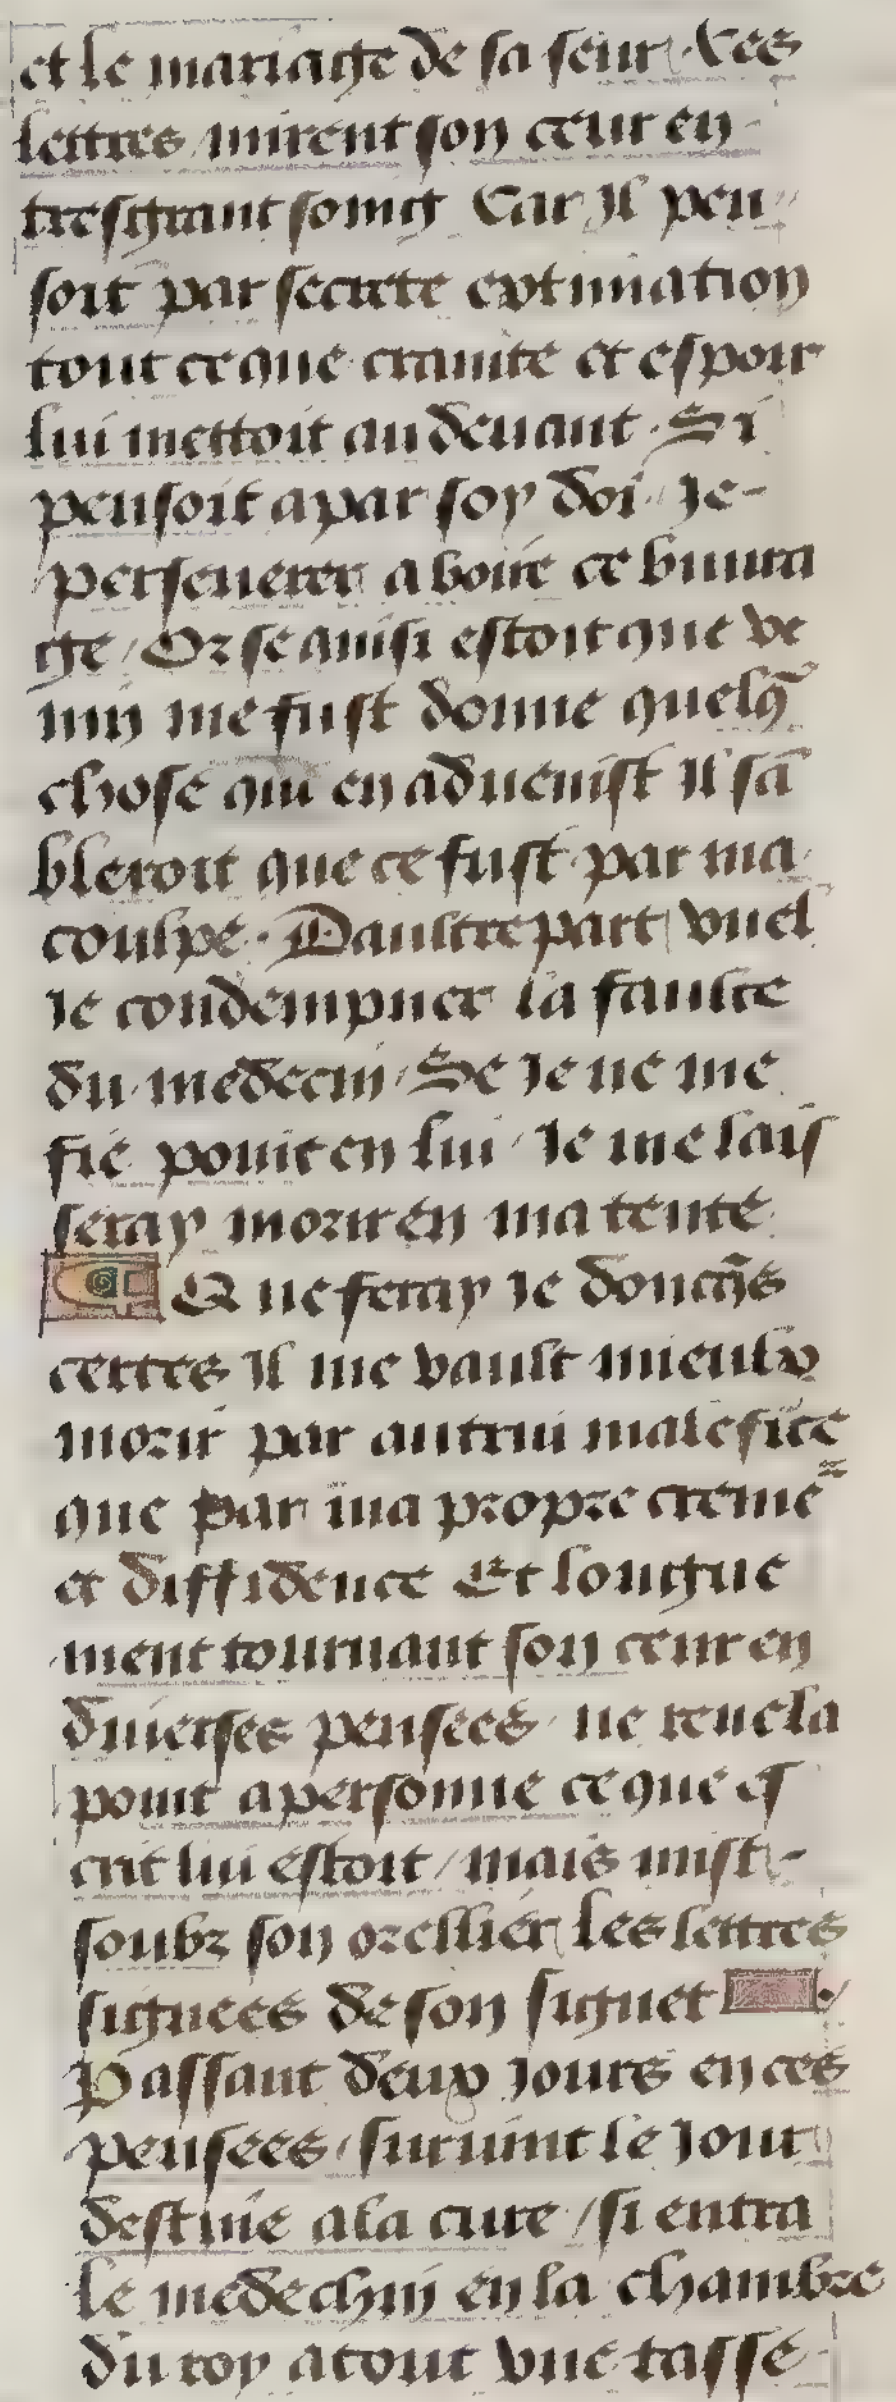 et le mariaige de sa seur / Ces
lettres mirent son ceur en
tresgrant soing Car Il pen
soit par secrete extimation
tout ce que crainte et espoir
lui mettoit au deuant . Si
pensoit a par soy doi / Je
perseuerer a boire ce buura
ge / Or se ainsi estoit que ve
nin me fust donne quelq̄
chose qui en aduenist Il sā
bleroit que ce fust par ma
coulpe . Daultre part vuel
Ie condempner la faulte
du medecin / Se Ie ne me
fie point en lui / Ie me lais
seray morir en ma tente
Que feray Ie doncq̄s
certes Il me vault mieulx
morir par autrui malefice
que par ma propre cremē
et diffidence Et longue
ment tournant son ceur en
diuerses pensees ne reuela
point a personne ce que es
crit lui estoit / mais mist
soubz son orellier les lettres
signees de son signet .
Passant deux Jours en ces
pensees / suruint le Jour
destine a la cure / si entra
le medechin en la chambre
du roy a tout vne tasse